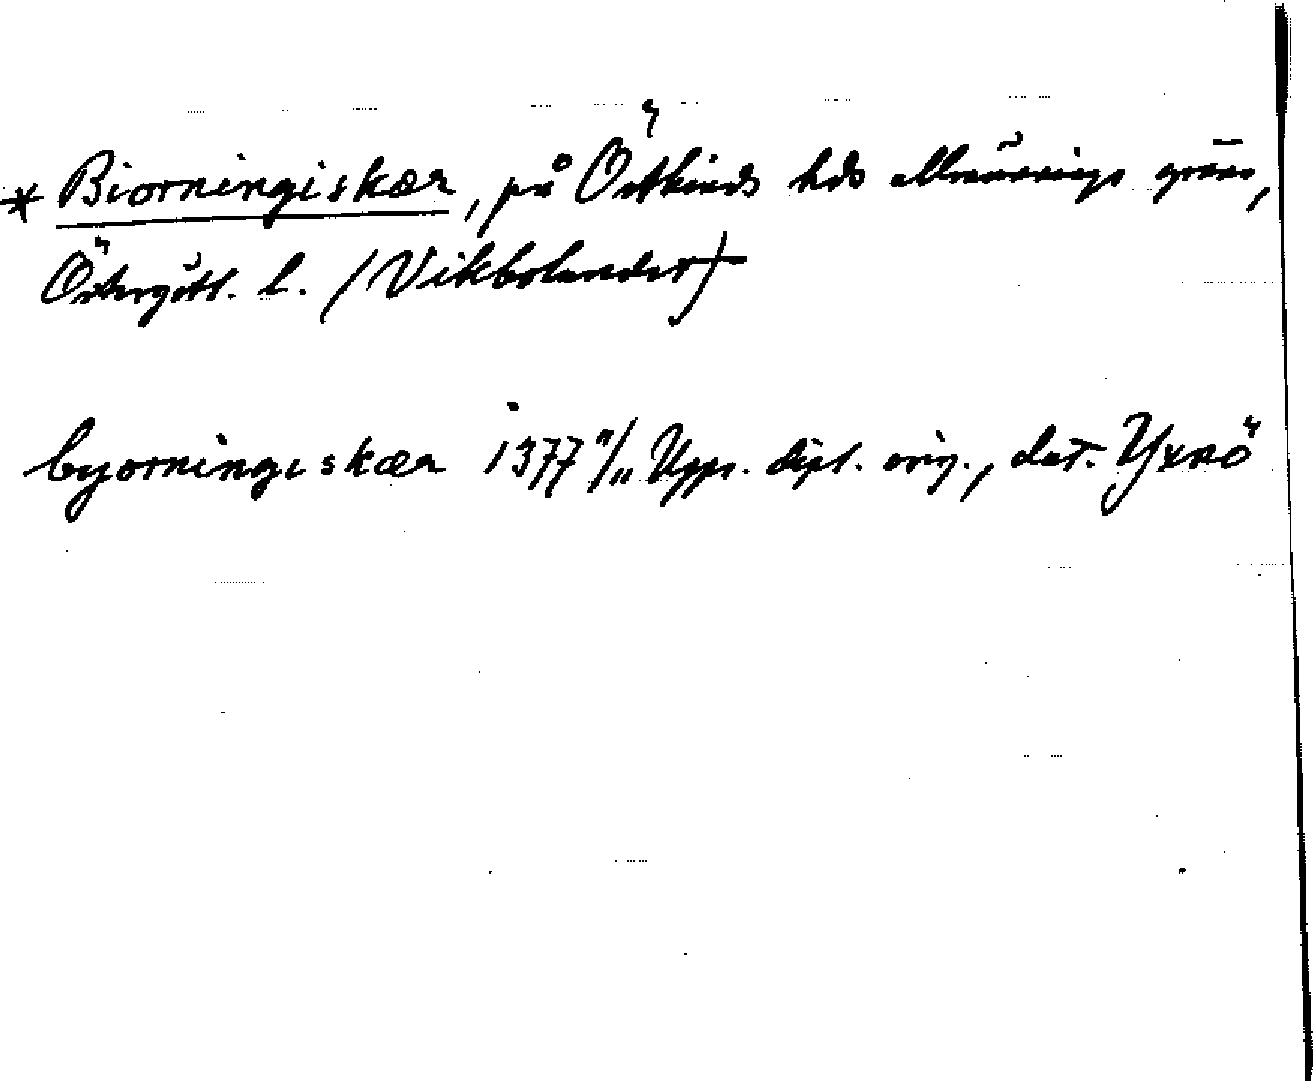 * Biorningiskær, på Östkinds hds allmännings gräns,
Östergötl. l. (Vikbolandet)
byorningiskær 1377 11/11 Upps. dipl. orig., dat. Yxnö